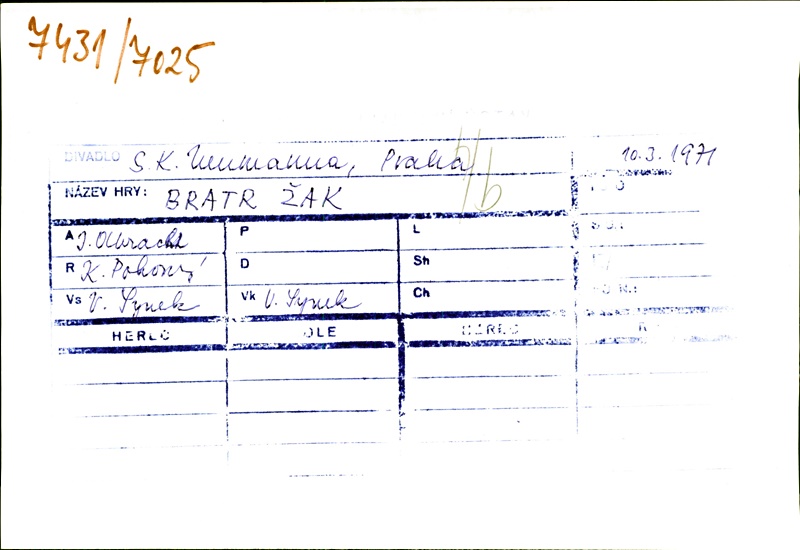 7431/7025
DIVADLO S. K. Neumanna, Praha 10.3.1971
NÁZEV HRY: BRATR ŽAK
A I. Olbracht P L
R K. Pokorný D Sh
Vs V. Synek Vk V. Synek Ch
HEREC OLE HEREC